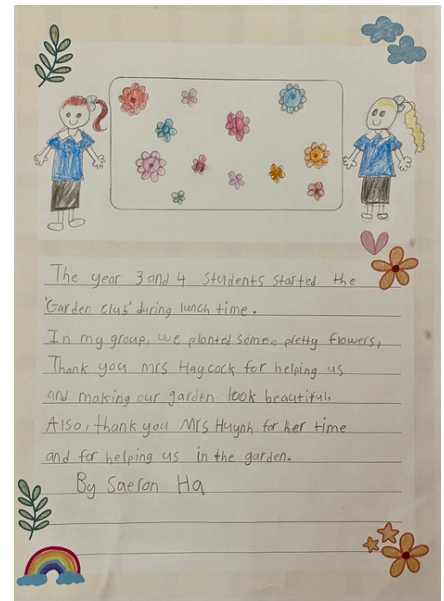 The year 3 and 4 students started the
'Garden club' during lunch time.
In my group, we planted some pretty flowers,
Thank you mrs Haycock for helping us
and making our garden look beautiful.
Also, thank you Mrs Huynh for her time
and for helping us in the garden.
By Saeron Ha